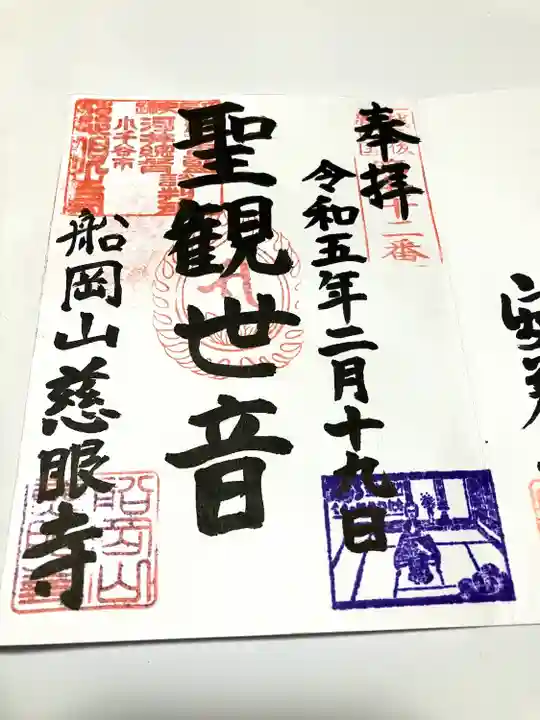 奉拝
令和五年二月十九日
聖観世音
船岡山慈眼寺
二番
小千谷市
船岡山